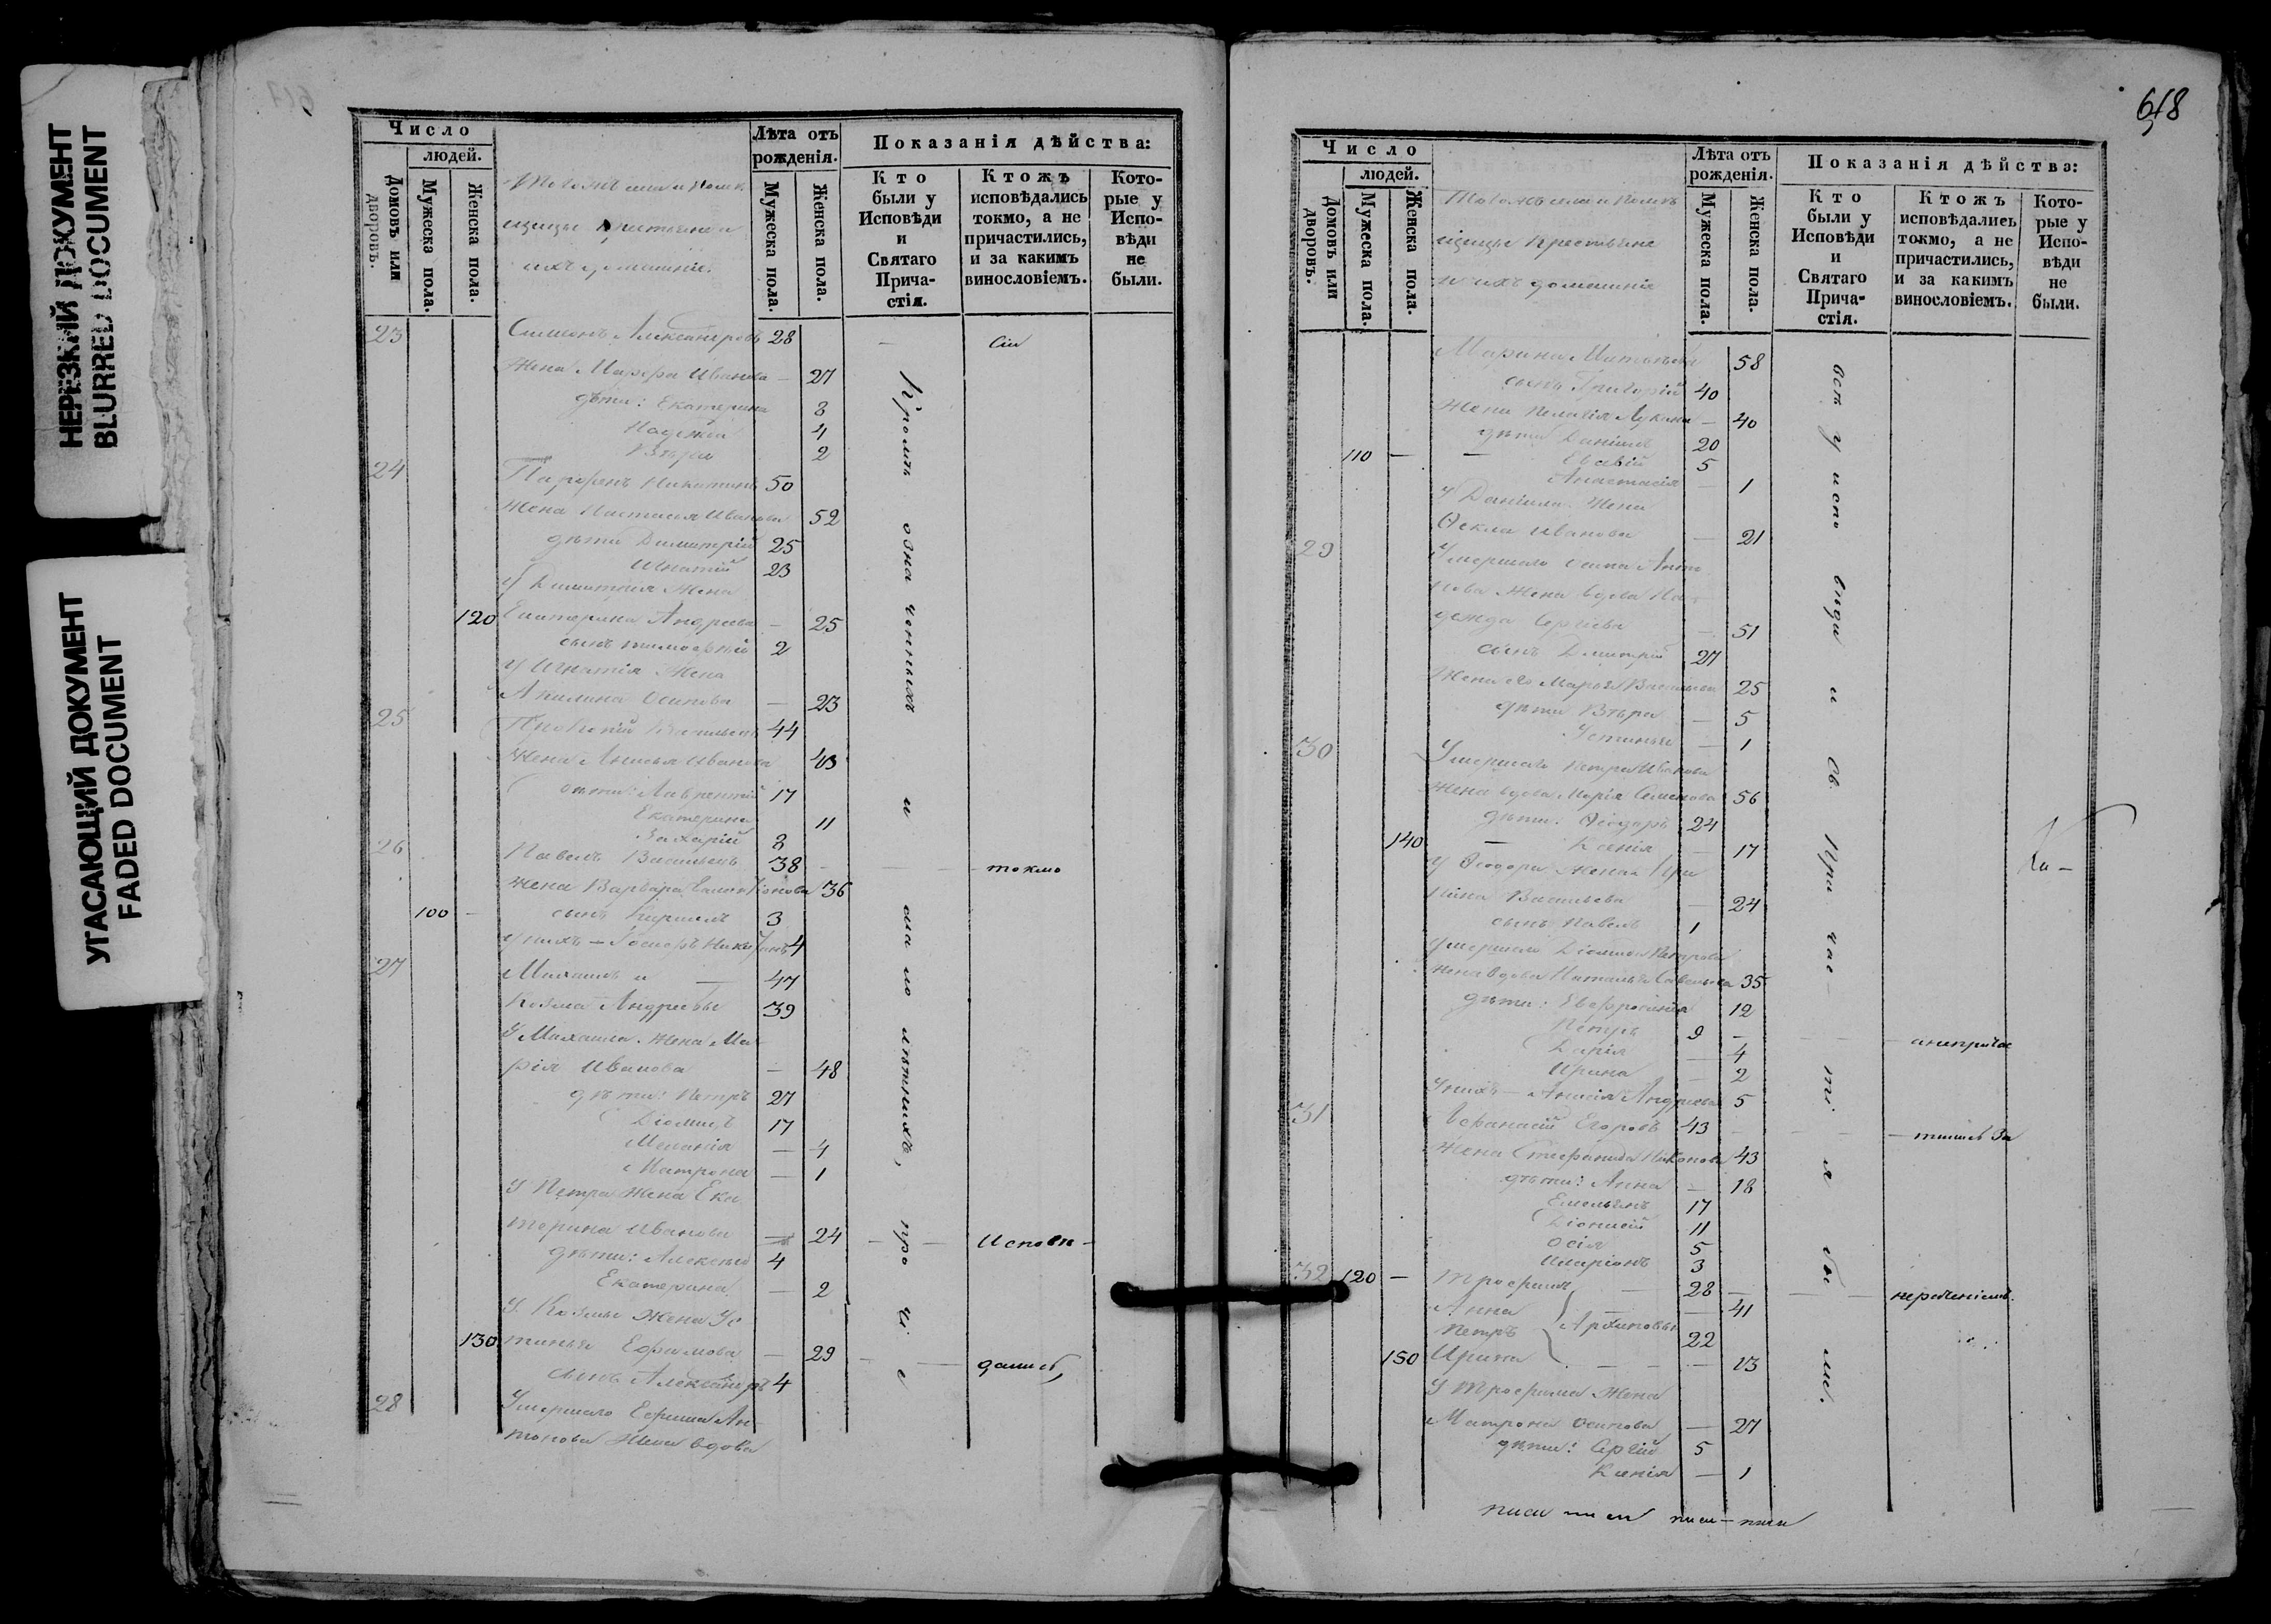 НЕРЕЗКИЙ ДОКУМЕНТ
BLURRED DOCUMENT
УГАСАЮЩИЙ ДОКУМЕНТ
FADED DOCUMENT
Число
людей.
Домовъ или дворовъ.
Мужеска пола.
Женска пола.
Тогожъ села и помѣ
щицы крестьяне и
ихъ домашніе.
Лѣта отъ рожденія.
Мужеска пола.
Женска пола.
Показанія дѣйства:
Кто были у Исповѣди и Святаго Причастія.
Ктожъ исповѣдались токмо, а не причастились, и за какимъ винословіемъ.
Которые у Исповѣди не были.
23 Симеонъ Александровъ 28 — Сіи
Жена Марфа Иванова — 27
дѣти: Екатерина 8
Надежда 4
Вѣра 2
24 Парфенъ Никитинъ 50
Жена Настасія Иванова 52
дѣти Димитрій 25
Игнатій 23
У Димитрія Жена
120 Екатерина Андреева — 25
сынъ Тимофей 2
У Игнатія Жена
Акилина Осипова — 23
25 Прокопій Васильевъ 44
Жена Анисья Иванова 43
дѣти: Лаврентій 17
Екатерина 11
Захарій 8
26 Павелъ Васильевъ 38 — токмо
Жена Варвара 36
100 — сынъ Кириллъ 3
У нихъ — 4
27 Михаилъ и — 47
Козма Андреевы 39
У Михаила Жена Ма
рія Иванова — 48
дѣти: Петръ 27
Діомидъ 17
Меланія — 4
Матрона — 1
У Петра Жена Ека
терина Иванова — 24 — Исповѣ —
дѣти: Алексѣй 4
Екатерина — 2
У Козмы Жена Ус
130 тинья Ефимова — 29 — дались,
сынъ Александръ 4
28 Умершаго Ефима Ан
тонова Жена вдова
Кромѣ означенныхъ и малолѣтнихъ, прочіе
618
Число
людей.
Домовъ или дворовъ.
Мужеска пола.
Женска пола.
Тогожъ села и помѣ
щицы Крестьяне
и ихъ домашніе
Лѣта отъ рожденія.
Мужеска пола.
Женска пола.
Показанія дѣйства:
Кто были у Исповѣди и Святаго Причастія.
Ктожъ исповѣдались токмо, а не причастились, и за какимъ винословіемъ.
Которые у Исповѣди не были.
Марина 58
сынъ Григорій 40
Жена Пелагія Лукина — 40
дѣти Даніилъ 20
110 — 5
Анастасія — 1
У Даніила Жена
Ѳекла Иванова — 21
29 Умершаго Осипа Анто
нова Жена вдова На
дежда Сергѣева — 51
сынъ Димитрій 27
Жена его Марья Васильева 25
дѣти Вѣра — 5
Устинья — 1
30 Умершаго Петра Иванова
Жена вдова Марія Семенова 56
дѣти: Ѳеодоръ 24
140 — Ксенія — 17
У Ѳеодора Жена Ири
Васильева — 24
сынъ Павелъ 1
Умершаго Діомида Петрова
жена вдова Наталья Савельева 35
дѣти: Евфросинія 12
Петръ 9 — анеприча
Дарія — 4
Ирина — 2
У нихъ — Андреева 5
31 Аѳанасій Егоровъ 43 — тились за
Жена Стефанида Никонова 43
дѣти: Анна — 18
Емельянъ 17
Діонисій 11
Осія 5
Иларіонъ 3
32 120 — Трофимъ — 28 — нерадѣніемъ.
Анна — 41
Петръ Архиповы 22
150 Ирина — 13
У Трофима Жена
Матрона Осипова — 27
дѣти: Сергій 5
Ксенія — 1
всѣ у исповѣди и Св. Причастія были.